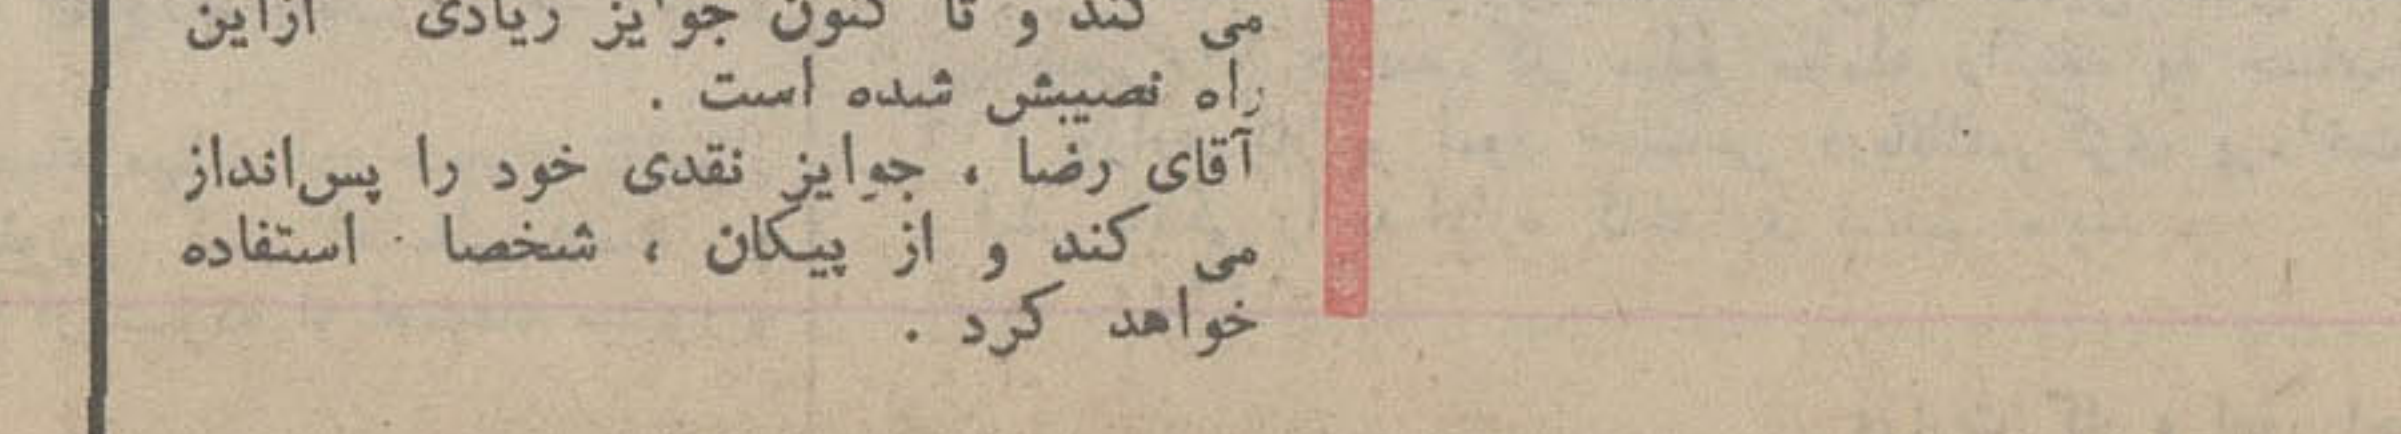 می کند و تا کنون جوایز زیادی ازاین
راه نصیبش شده است .
آقای رضا ، جوایز نقدی خود را پس‌انداز
می کند و از پیکان ، شخصا استفاده
خواهد کرد .